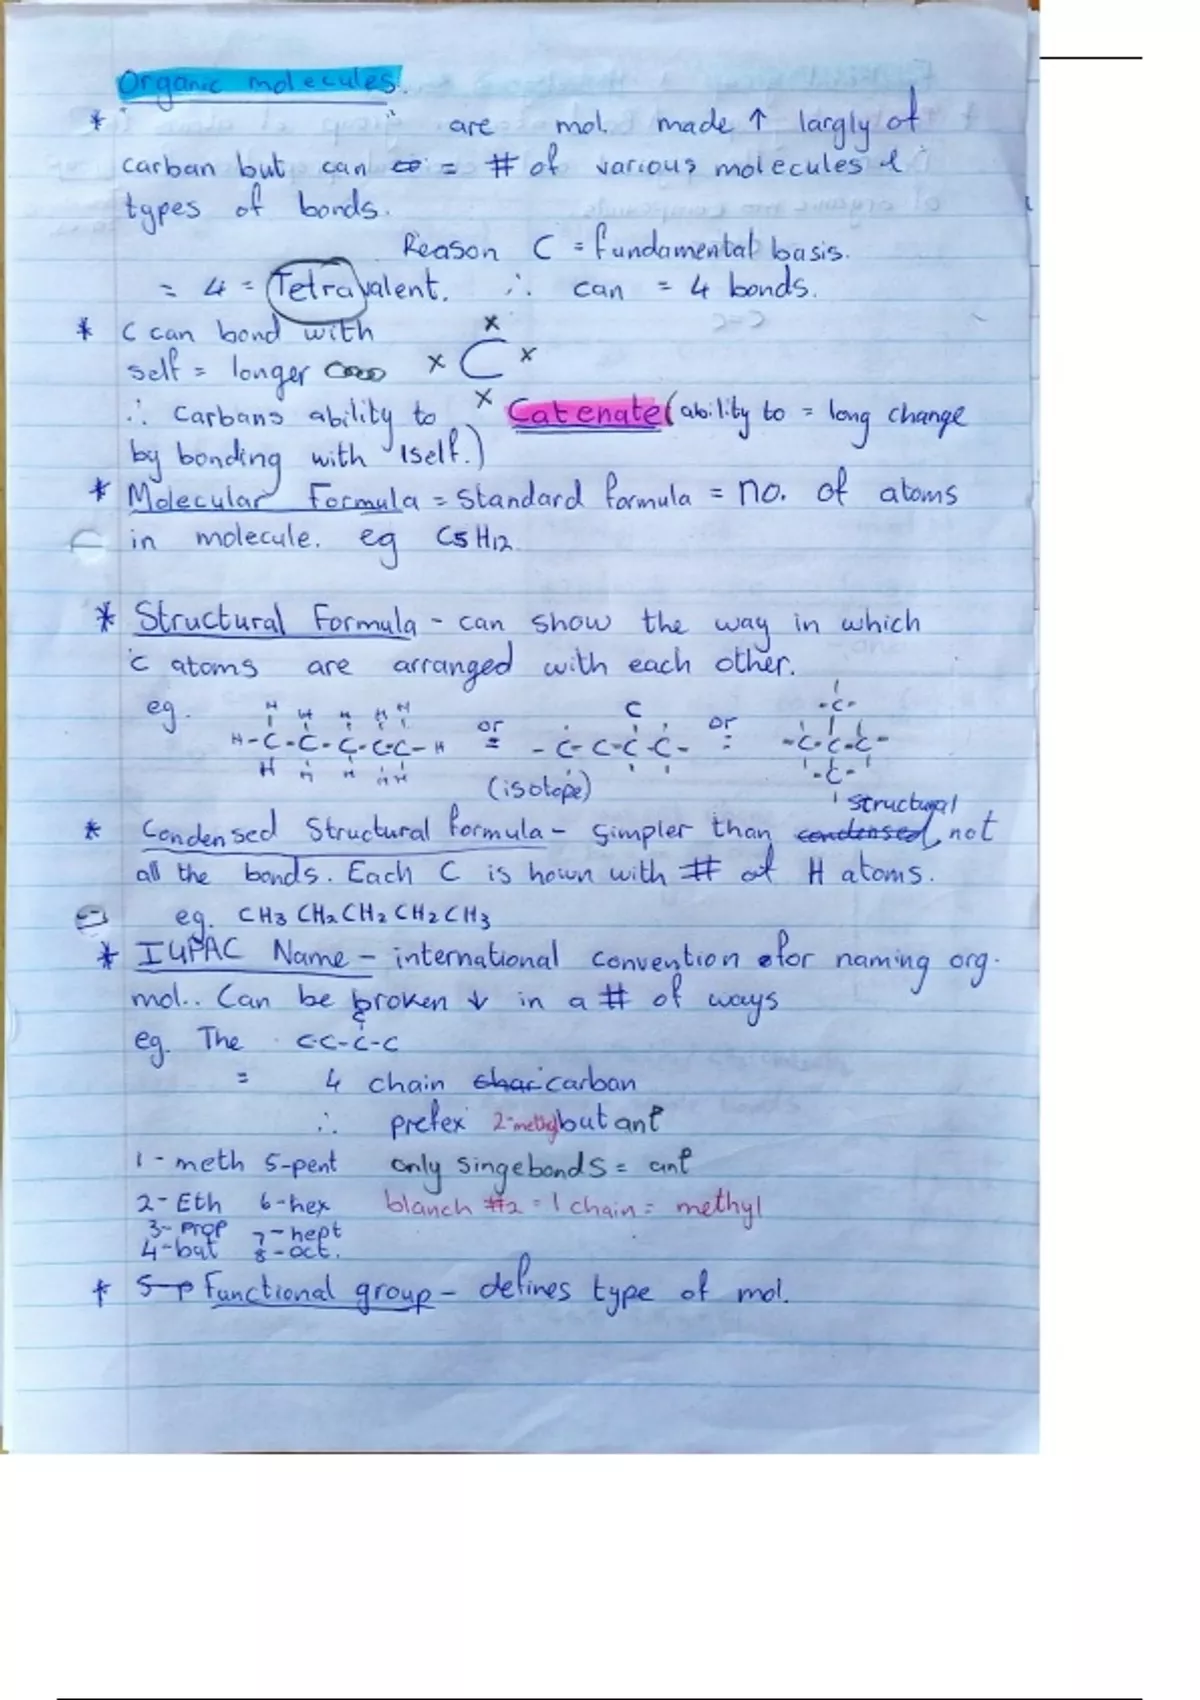 Organic molecules.
* " " are mol. made ↑ largly of
carban but can = # of various molecules &
types of bonds.
Reason C = fundamental basis.
= 4 = Tetravalent. ∴ can = 4 bonds.
* C can bond with
self = longer
x C x
x
x
∴ Carbans ability to Catenate (ability to = long change
by bonding with 1self.)
* Molecular Formula = standard formula = no. of atoms
in molecule. eg C5H12.
* Structural Formula - can show the way in which
C atoms are arranged with each other.
eg.
H H H H H
H-C-C-C-C-C-H or = -C-C-C-C- or :
C
-C-
-C-C-C-
-C-
H H H H H
(isotope)
structural
* Condensed Structural formula - simpler than condensed, not
all the bonds. Each C is hown with # of H atoms.
eg. CH3 CH2 CH2 CH2 CH3
* IUPAC Name - international convention for naming org.
mol.. Can be broken ↓ in a # of ways
C
eg. The C-C-C-C
= 4 chain carban
∴ prefex 2-methylbutane
1 - meth 5-pent only singebonds = ane
2- Eth 6-hex blanch #2 = 1 chain = methyl
3- Prop 7-hept
4-but 8-oct.
* 5-p Functional group - defines type of mol.